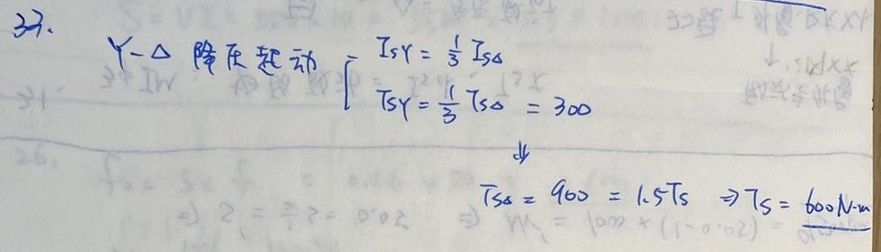 33.
Y-Δ 降压起动 { IsY = 1/3 IsΔ
TsY = 1/3 TsΔ = 300
⇓
TsΔ = 900 = 1.5Ts ⇒ Ts = 600N·m